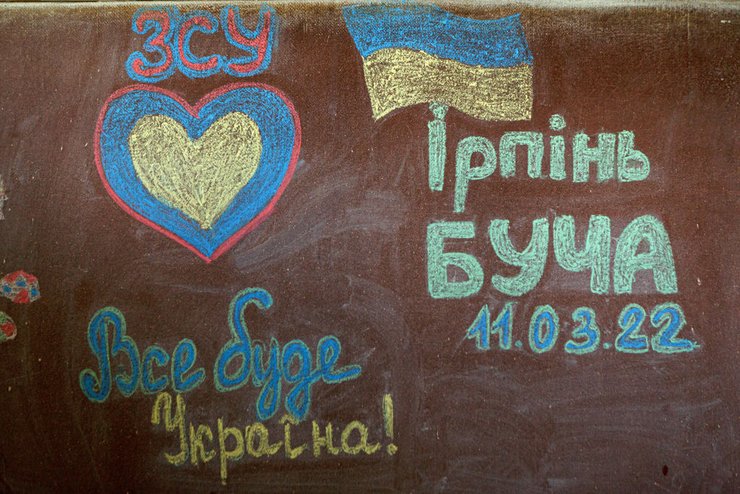 ЗСУ
Ірпінь
БУЧА
11.03.22
Все буде
Україна!